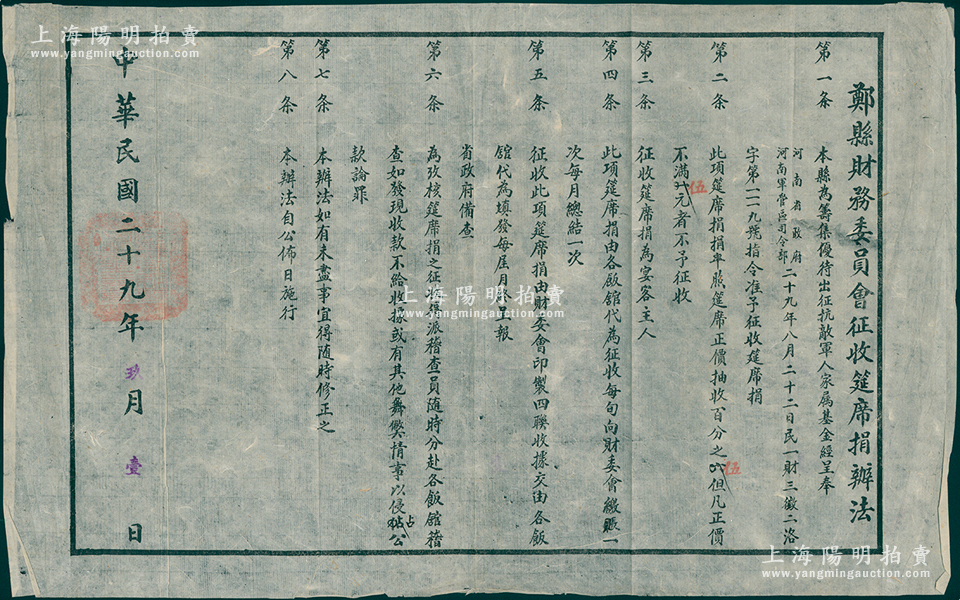 鄭縣財務委員會征收筵席捐辦法
第一条 本縣為籌集優待出征抗敵軍人家属基金經呈奉
河南省政府
河南軍管區司令部 二十九年八月二十二日民一財三徵二洛
字第一一二九號指令准予征收筵席捐
第二条 此項筵席捐捐率照筵席正價抽收百分之六伍但凡正價
不满弍伍元者不予征收
第三条 征收筵席捐為宴客主人
第四条 此項筵席捐由各飯舘代為征收每旬向財委會繳賬一
次每月總结一次
第五条 征收此項筵席捐由財委會印製四聯收據交由各飯
舘代為填發每屆月終 報
省政府備查
第六条 為攷核筵席捐之征收得派稽查員随時分赴各飯舘稽
查如發現收款不給收據或有其他舞弊情事以侵佔公
款論罪
第七条 本辦法如有未盡事宜得随時修正之
第八条 本辦法自公佈日施行
中華民國二十九年玖月壹日
上海陽明拍賣
www.yangmingauction.com
上海陽明拍賣
www.yangmingauction.com
上海陽明拍賣
www.yangmingauction.com